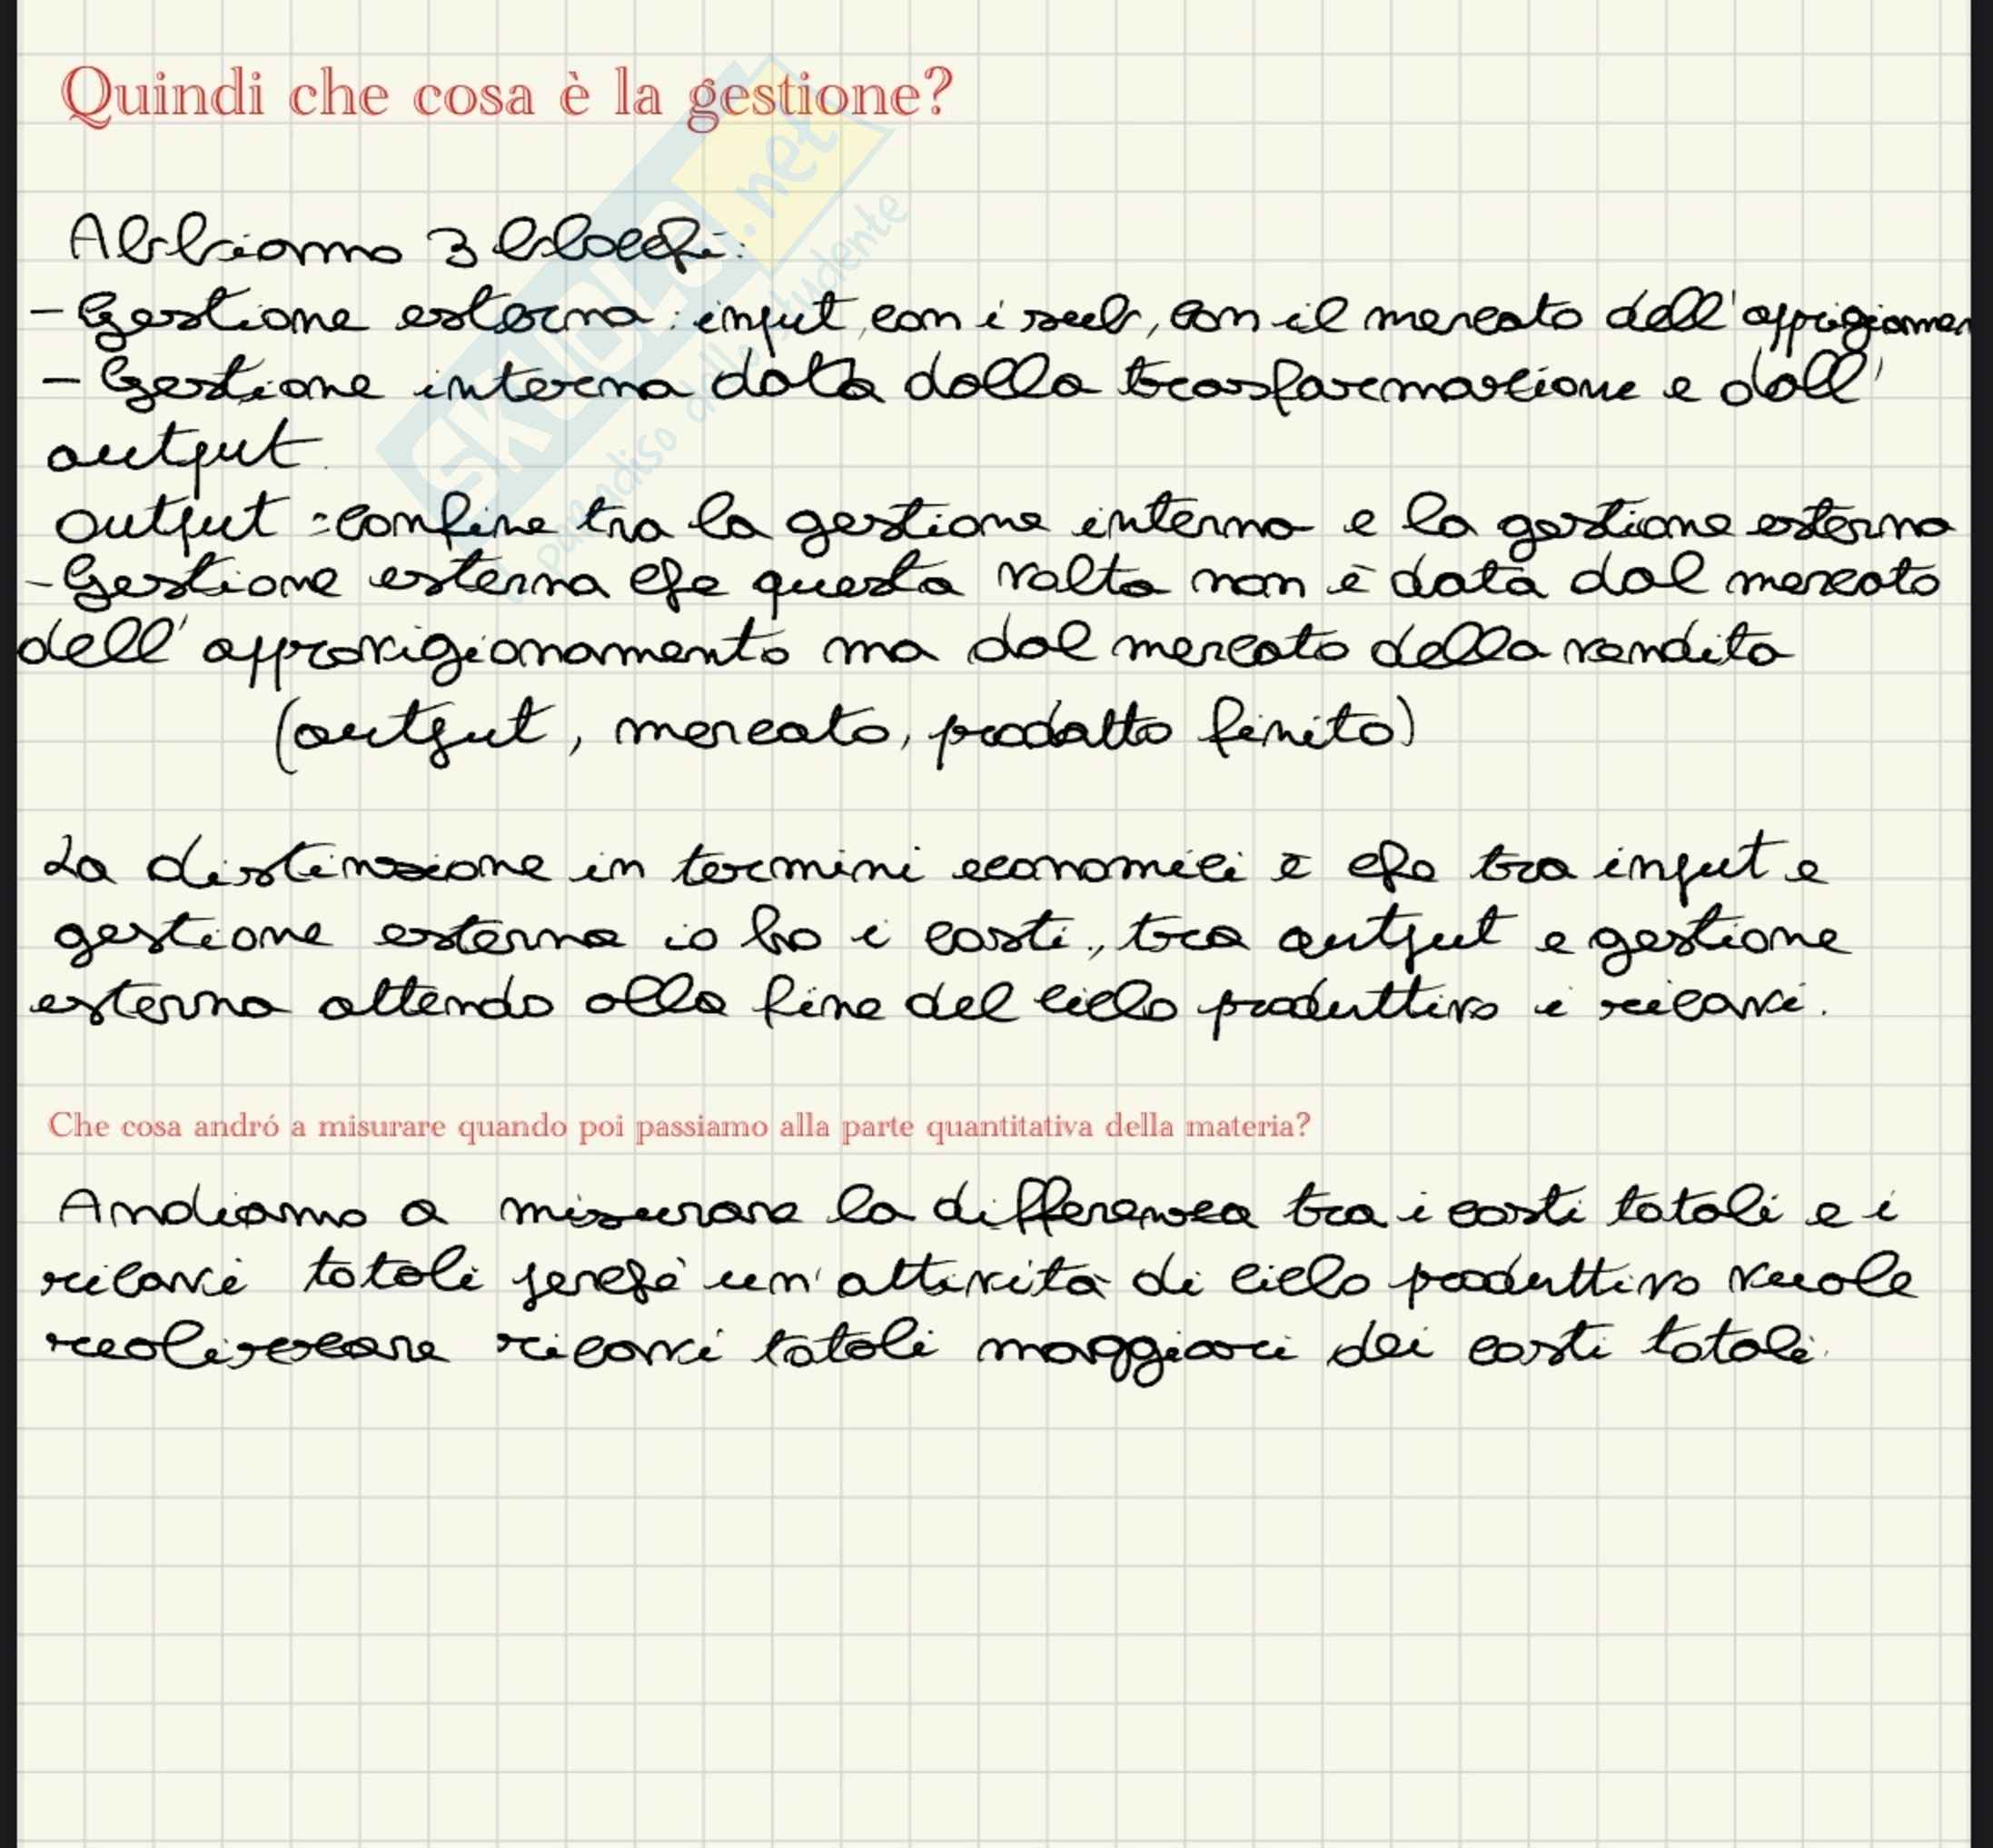 Quindi che cosa è la gestione?
Abbiamo 3 blocchi:
- Gestione esterna: input, con i sub, con il mercato dell'
- Gestione interna data dalla trasformazione e dall'
output.
output = confine tra la gestione interna e la gestione esterna
- Gestione esterna che questa volta non è data dal mercato
dell'approvigionamento ma dal mercato della vendita
(output, mercato, prodotto finito)
La distinzione in termini economici è che tra input e
gestione esterna io ho i costi, tra output e gestione
esterna attendo alla fine del ciclo produttivo i ricavi.
Che cosa andró a misurare quando poi passiamo alla parte quantitativa della materia?
Andiamo a misurare la differenza tra i costi totali e i
ricavi totali perchè un'attività di ciclo produttivo vuole
realizzare ricavi totali maggiori dei costi totali.
SKUOLA.net
paradiso dello studente